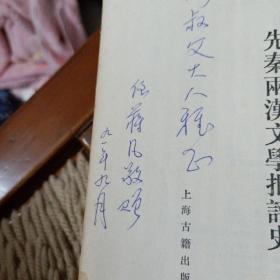 先秦兩漢文學批評史
上海古籍出版
叔父大人雅正
侄 蒋凡敬贈
九一年九月